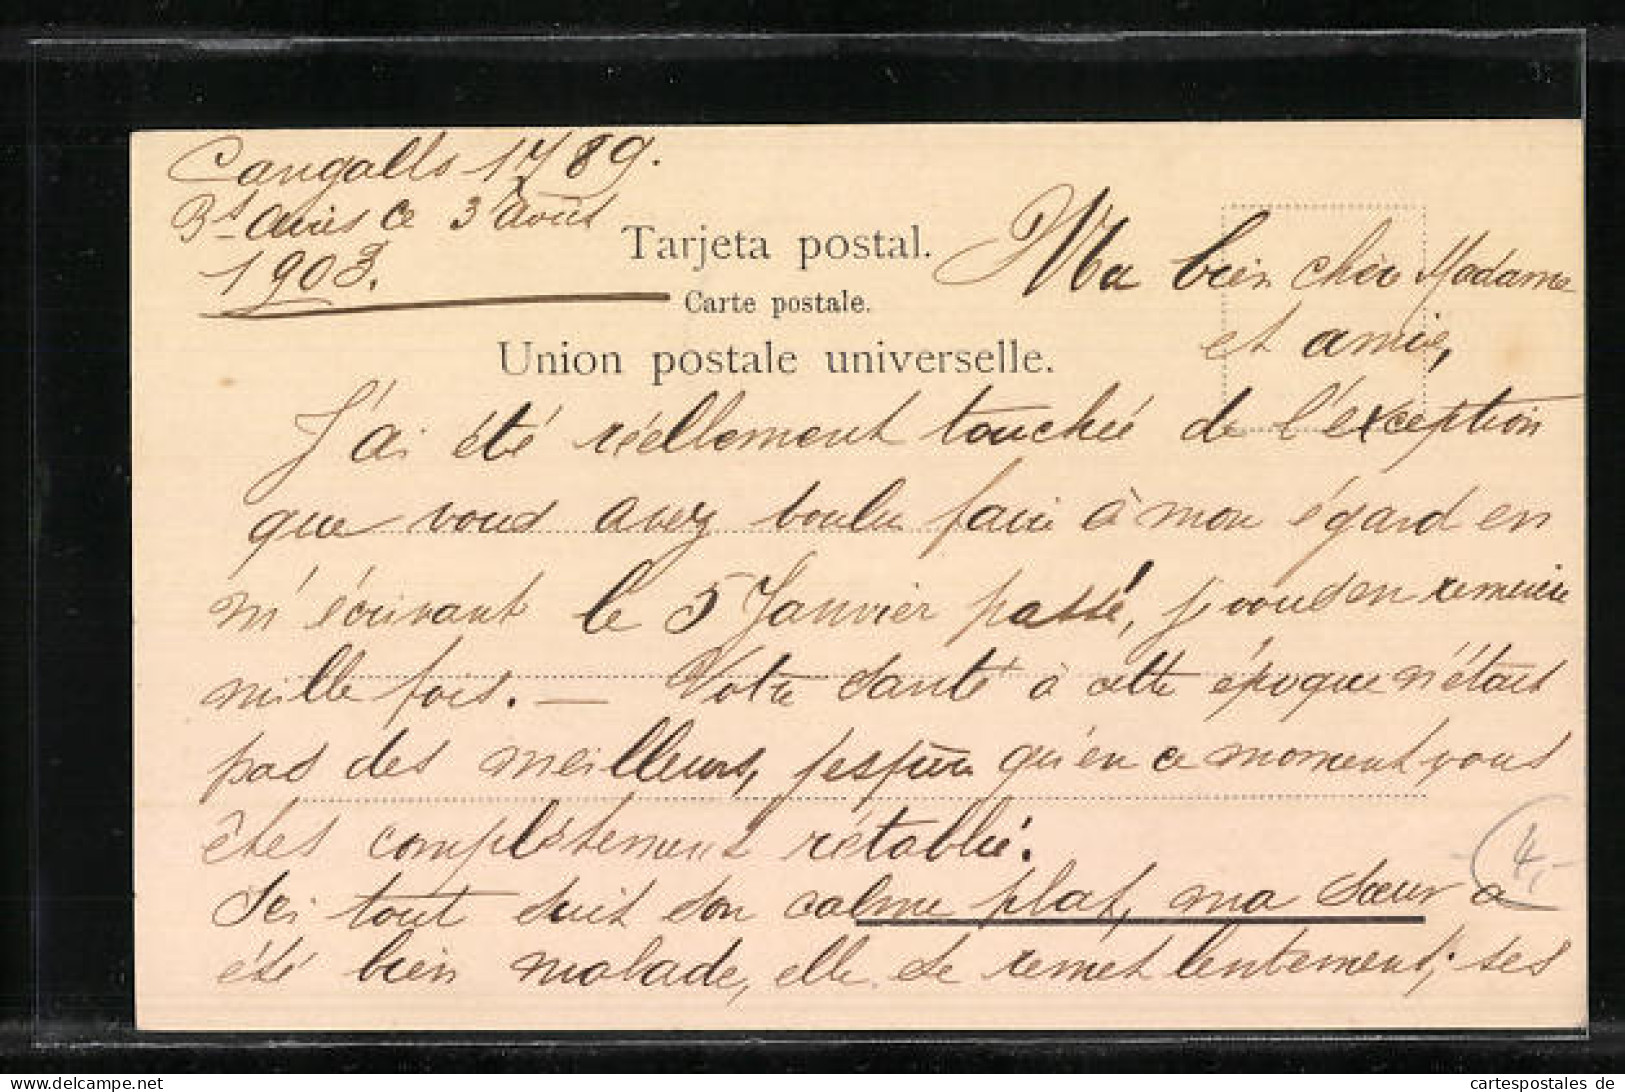 Cangallo 1789.
Bs aires ce 3 août
1903.
Tarjeta postal.
Carte postale.
Union postale universelle.
Ma bien chère Madame
et amie,
J'ai été réellement touchée de l'exception
que vous avez voulu faire à mon égard en
m'écrivant le 5 Janvier passé, je vous en remercie
mille fois. — Votre santé à cette époque n'était
pas des meilleurs, j'espère qu'en ce moment vous
êtes complètement rétablie.
Ici tout suit son calme plat, ma sœur a
été bien malade, elle se remet lentement; ses
4,-
cartespostales de